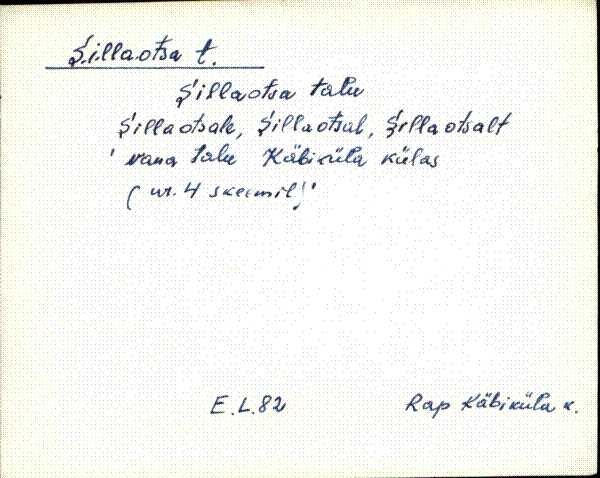 Sillaotsa t.
Sillaotsa talu
Sillaotsale, Sillaotsal, Sillaotsalt
' vana talu Käbiküla külas
( nr. 4 skeemil)'
E.L.82 Rap Käbiküla k.